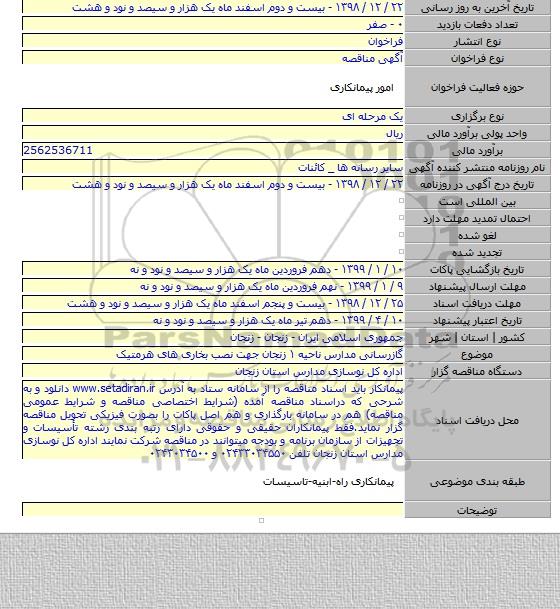 تاریخ آخرین به روز رسانی ۲۲ / ۱۲ / ۱۳۹۸ - بیست و دوم اسفند ماه یک هزار و سیصد و نود و هشت
تعداد دفعات بازدید ۰ - صفر
نوع انتشار فراخوان
نوع فراخوان آگهی مناقصه
حوزه فعالیت فراخوان امور پیمانکاری
نوع برگزاری یک مرحله ای
واحد پولی برآورد مالی ریال
برآورد مالی 2562536711
نام روزنامه منتشر کننده آگهی سایر رسانه ها _ کائنات
تاریخ درج آگهی در روزنامه ۲۲ / ۱۲ / ۱۳۹۸ - بیست و دوم اسفند ماه یک هزار و سیصد و نود و هشت
بین المللی است
احتمال تمدید مهلت دارد
لغو شده
تجدید شده
تاریخ بازگشایی پاکات ۱۰ / ۱ / ۱۳۹۹ - دهم فروردین ماه یک هزار و سیصد و نود و نه
مهلت ارسال پیشنهاد ۹ / ۱ / ۱۳۹۹ - نهم فروردین ماه یک هزار و سیصد و نود و نه
مهلت دریافت اسناد ۲۵ / ۱۲ / ۱۳۹۸ - بیست و پنجم اسفند ماه یک هزار و سیصد و نود و هشت
تاریخ اعتبار پیشنهاد ۱۰ / ۴ / ۱۳۹۹ - دهم تیر ماه یک هزار و سیصد و نود و نه
کشور | استان | شهر جمهوری اسلامی ایران - زنجان - زنجان
موضوع گازرسانی مدارس ناحیه ۱ زنجان جهت نصب بخاری های هرمتیک
دستگاه مناقصه گزار اداره کل نوسازی مدارس استان زنجان
محل دریافت اسناد
پیمانکار باید اسناد مناقصه را از سامانه ستاد به آدرس www.setadiran.ir دانلود و به
شرحی که دراسناد مناقصه آمده (شرایط اختصاصی مناقصه و شرایط عمومی
مناقصه) هم در سامانه بارگذاری و هم اصل پاکات را بصورت فیزیکی تحویل مناقصه
گزار نماید.فقط پیمانکاران حقیقی و حقوقی دارای رتبه بندی رشته تأسیسات و
تجهیزات از سازمان برنامه و بودجه میتوانند در مناقصه شرکت نمایند اداره کل نوسازی
مدارس استان زنجان تلفن ۰۲۴۳۳۰۳۴۵۵۰ و ۰۲۴۳۳۰۳۴۵۰۰
طبقه بندی موضوعی پیمانکاری راه-ابنیه-تاسیسات
توضیحات
ParsNamadData